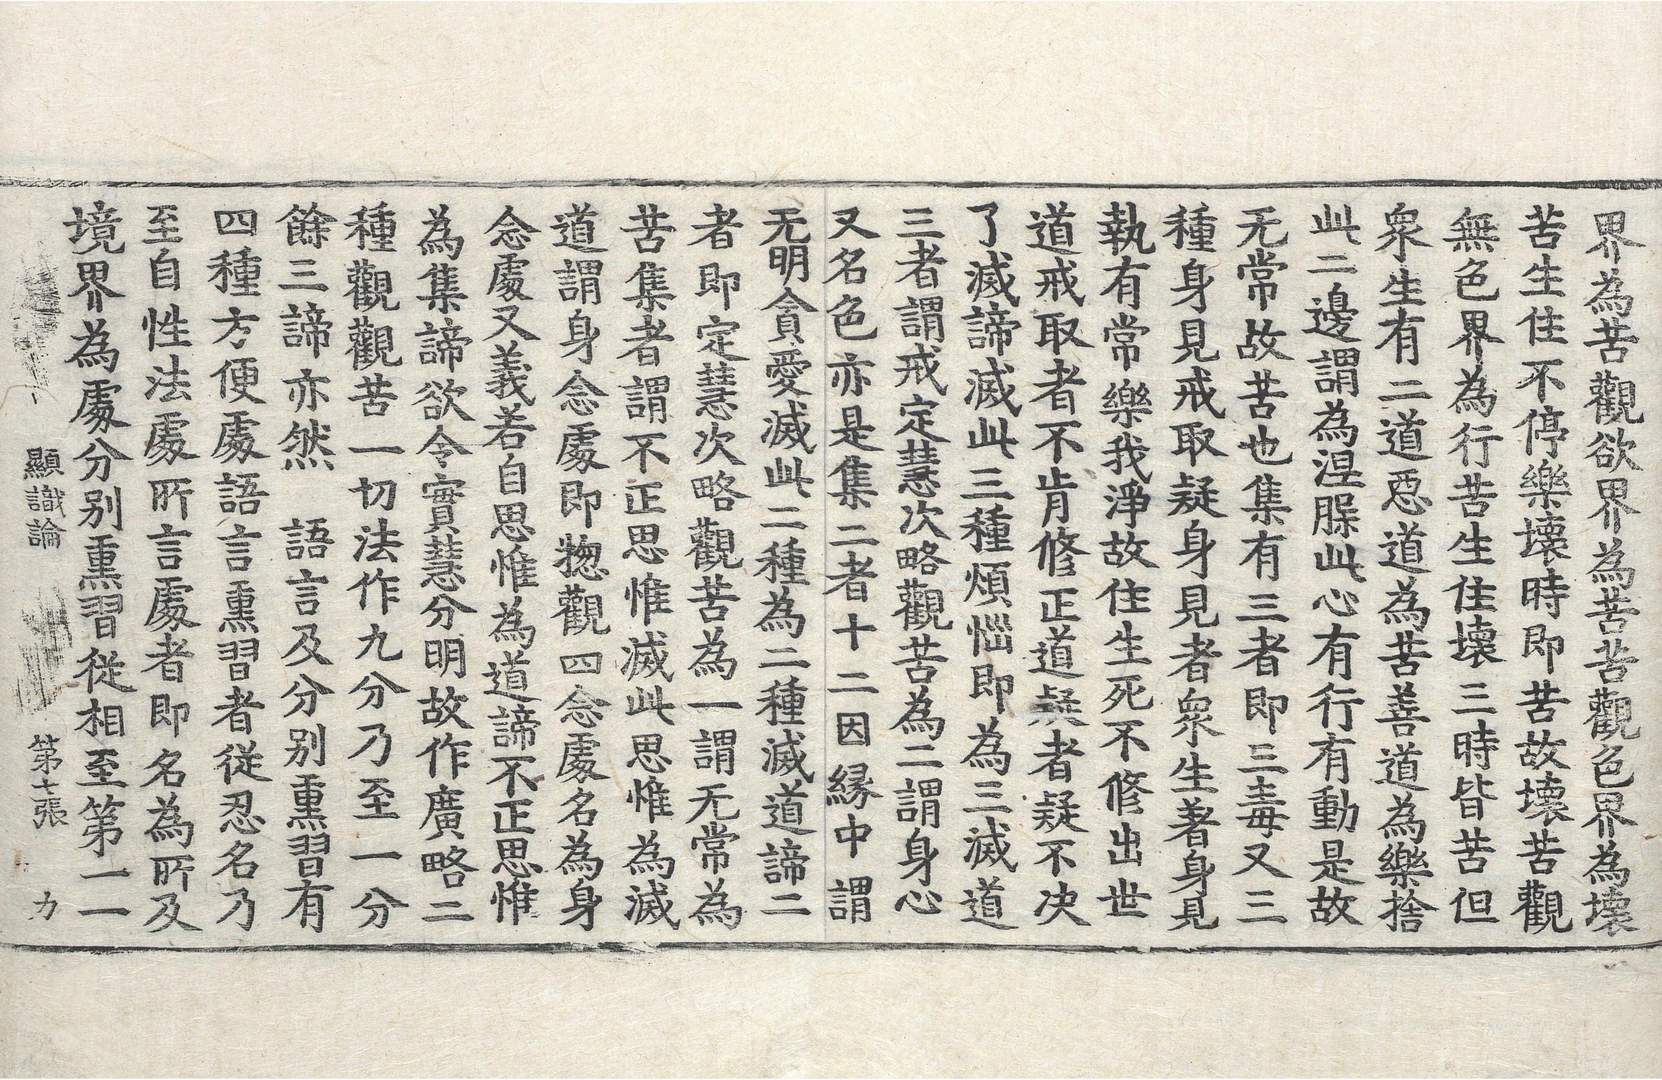 界為苦觀欲界為苦苦觀色界為壞
苦生住不停樂壞時即苦故壞苦觀
無色界為行苦生住壞三時皆苦但
衆生有二道惡道為苦善道為樂捨
此二邊謂為涅槃此心有行有動是故
无常故苦也集有三者即三毒又三
種身見戒取疑身見者衆生著身見
執有常樂我淨故住生死不修出世
道戒取者不肯修正道疑者疑不决
了滅諦滅此三種煩惱即為三滅道
三者謂戒定慧次略觀苦為二謂身心
又名色亦是集二者十二因緣中謂
无明貪愛滅此二種為二種滅道諦二
者即定慧次略觀苦為一謂无常為
苦集者謂不正思惟滅此思惟為滅
道謂身念處即揔觀四念處名為身
念處又義若自思惟為道諦不正思惟
為集諦欲令實慧分明故作廣略二
種觀觀苦一切法作九分乃至一分
餘三諦亦然　語言及分别熏習有
四種方便處語言熏習者從忍名乃
至自性法處所言處者即名為所及
境界為處分别熏習從相至第一一
顯識論　第七張　力